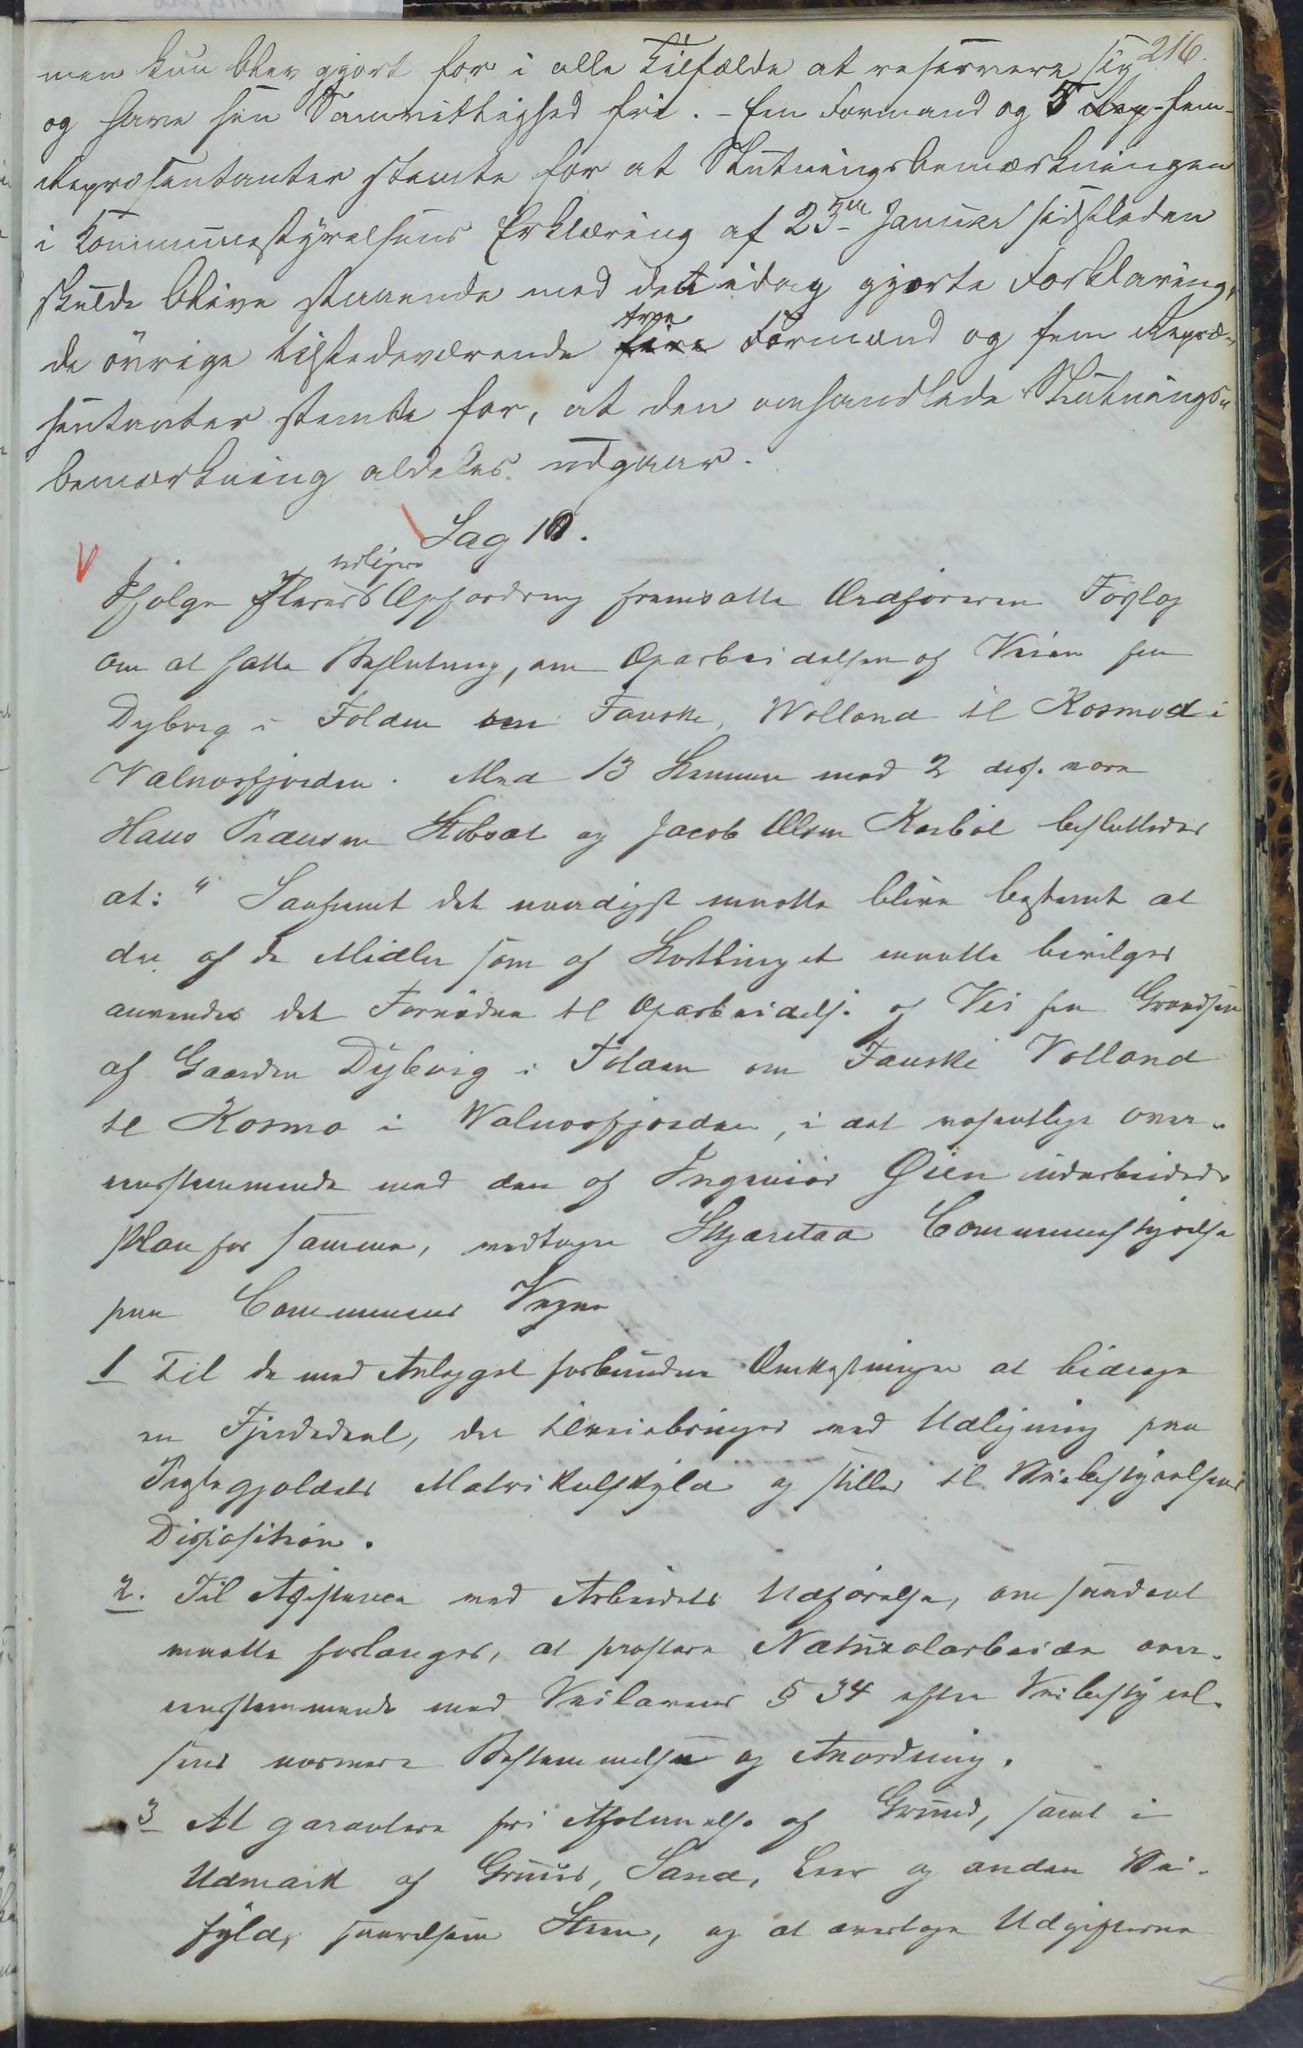 216.
men kun blev gjort for i alle Tilfælde at reservere sig
og have sin Samvittighed fri. – Een Formand og 5 Rep- fem-
Repræsentanter stemte for at Slutningsbemærkningen
i Kommunestyrelsens Erklæring af 23de Januar sidstleden
skulde blive staaende med den idag gjorte Forklaring,
tree
de övrige tilstedeværende fire Formænd og fem Repræ-
sentanter stemte for, at den omhandlede Slutnings-
bemærkning aldeles udgaar.
Sag 10.
tidligere
Ifølge fleres Opfordring fremsatte Ordføreren Forslag
om at fatte Beslutning, om Oparbeidelsen af Veien fra
Dybvig i Folden om Fauske, Wolland til Kosmo i
Valnesfjorden. Med 13 Stemmer mod 2 disse vare
Hans Hansen og Jacob Olsen Karbøl besluttedes
at: " Saafremt det naadigst maatte blive bestemt at
der af de Midler som af Storthinget maatte bevilges
anvendes det Fornødne til Oparbeidelse af Vei fra Grændsen
af Gaarden Dybvig i Folden om Fauske Volland
til Kosmo i Walnesfjorden, i det væsentlige over-
eensstemmende med den af Ingeniør Gien udarbeidede
Plan for samme, vedtager Skjerstad Communestyrelse
paa Communens Vegne
1 Til de med Anlægget forbundne Omkostninger at bidrage
en Fjerdedeel, der tilveiebringes ved Udligning paa
Præstegjældets Matrikulskyld og stilles til Veibestyrelsens
Disposition.
2. Til Assistance ved Arbeidets Udførelse, om saadant
maatte forlanges, at præstere Naturalarbeide over-
eensstemmende med Veilovens § 34 efter Veibestyrel-
sens nærmere Bestemmelse og Anordning.
3 At garantere fri Afstaaelse af Grund, samt i
Udmark af Gruus, Sand, Leer og anden Vei-
fyld, saavelsom Steen, og at overtage Udgifterne